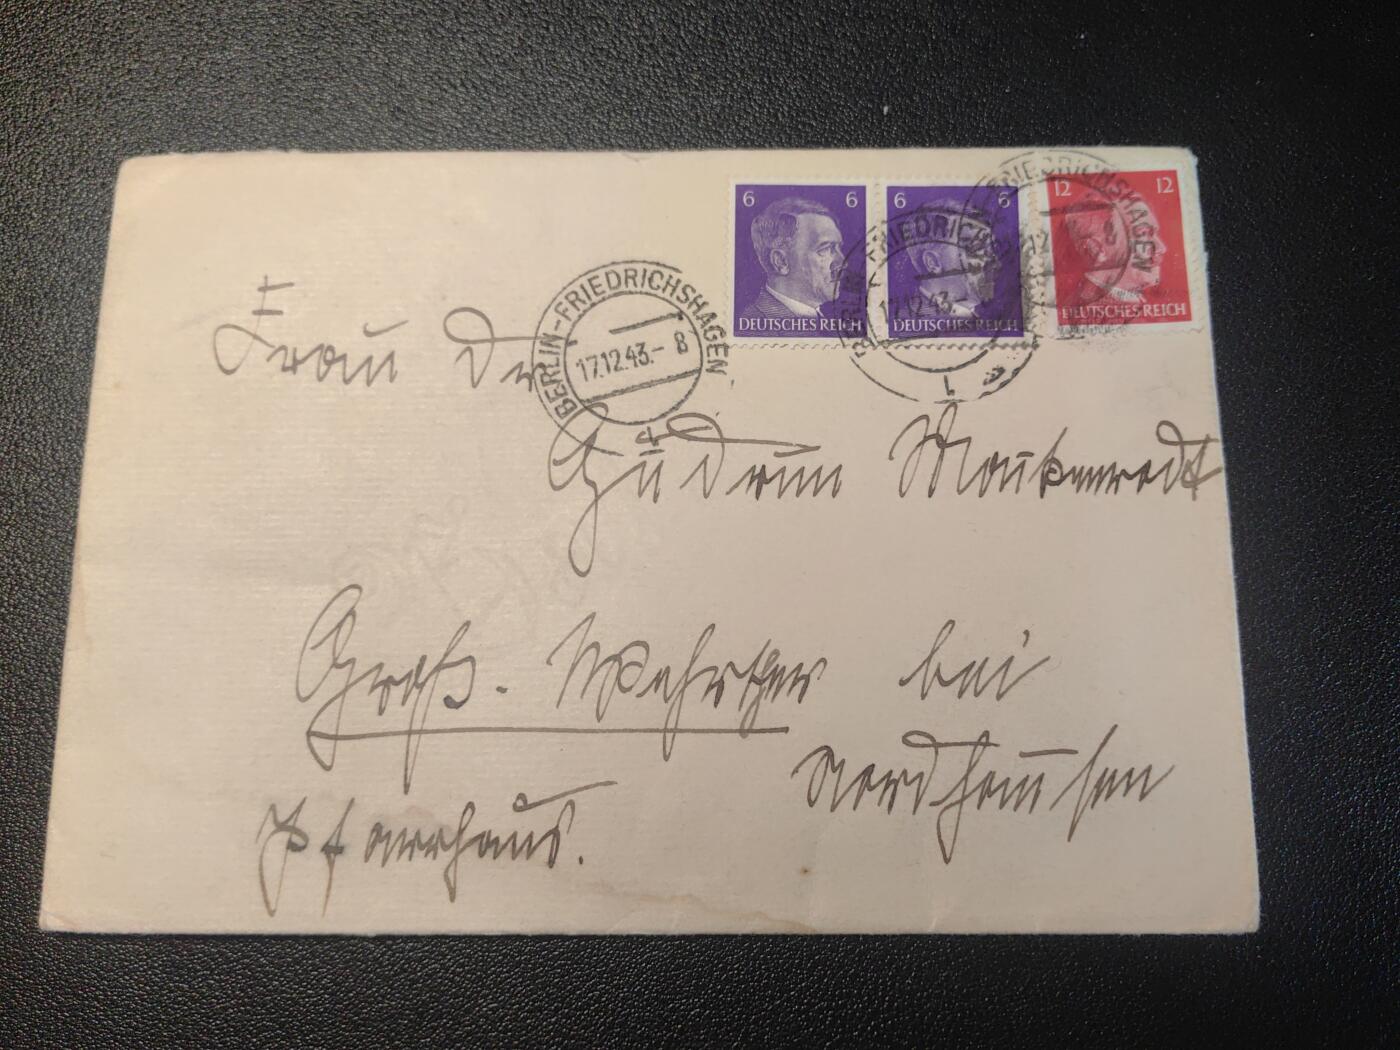 6 6
DEUTSCHES REICH
6 6
DEUTSCHES REICH
12 12
DEUTSCHES REICH
BERLIN-FRIEDRICHSHAGEN
17.12.43.- 8
BERLIN-FRIEDRICHSHAGEN
17.12.43.-
1
FRIEDRICHSHAGEN
8
Frau Dr
Gudrun
Groß. Wechsungen bei
Nordhausen
Pfarrhaus.